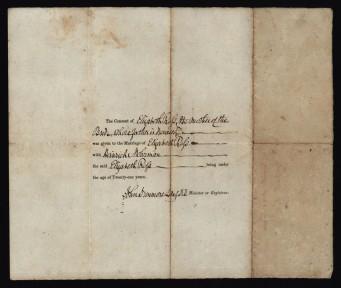 The Consent of Elizabeth Ross, the mother of the
Bride, whose father is deceased
was given to the Marriage of Elizabeth Ross
with Solomon
the said Elizabeth Ross being under
the age of Twenty-one years.
John Dunmore Lang D.D. Minister or Registrar.